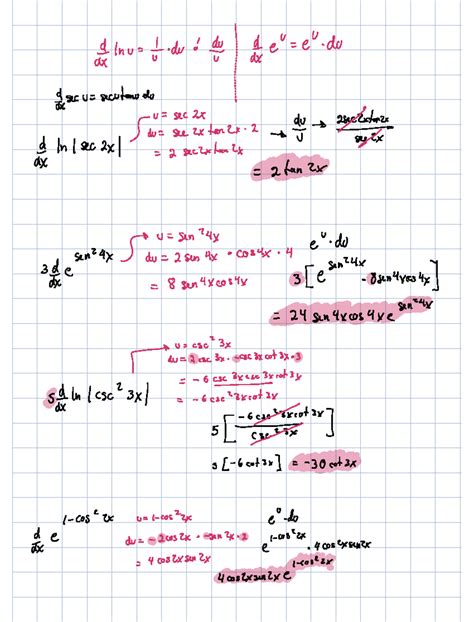 d/dx ln u = 1/u · du ó du/u | d/dx e^u = e^u · du
d/dx sec u = sec u tan u du
d/dx ln |sec 2x|
u = sec 2x
du = sec 2x tan 2x · 2
= 2 sec 2x tan 2x
→ du/u → 2 sec 2x tan 2x / sec 2x
= 2 tan 2x
3 d/dx e^sen² 4x
u = sen² 4x
du = 2 sen 4x · cos 4x · 4
= 8 sen 4x cos 4x
e^u · du
3 [e^sen² 4x · 8 sen 4x cos 4x]
= 24 sen 4x cos 4x e^sen² 4x
5 d/dx ln |csc² 3x|
u = csc² 3x
du = 2 csc 3x · -csc 3x cot 3x · 3
= -6 csc 3x csc 3x cot 3x
= -6 csc² 3x cot 3x
5 [-6 csc² 3x cot 3x / csc² 3x]
5 [-6 cot 3x] = -30 cot 3x
d/dx e^1-cos² 2x
u = 1-cos² 2x
du = -2 cos 2x · -sen 2x · 2
= 4 cos 2x sen 2x
e^u · du
e^1-cos² 2x · 4 cos 2x sen 2x
4 cos 2x sen 2x e^1-cos² 2x